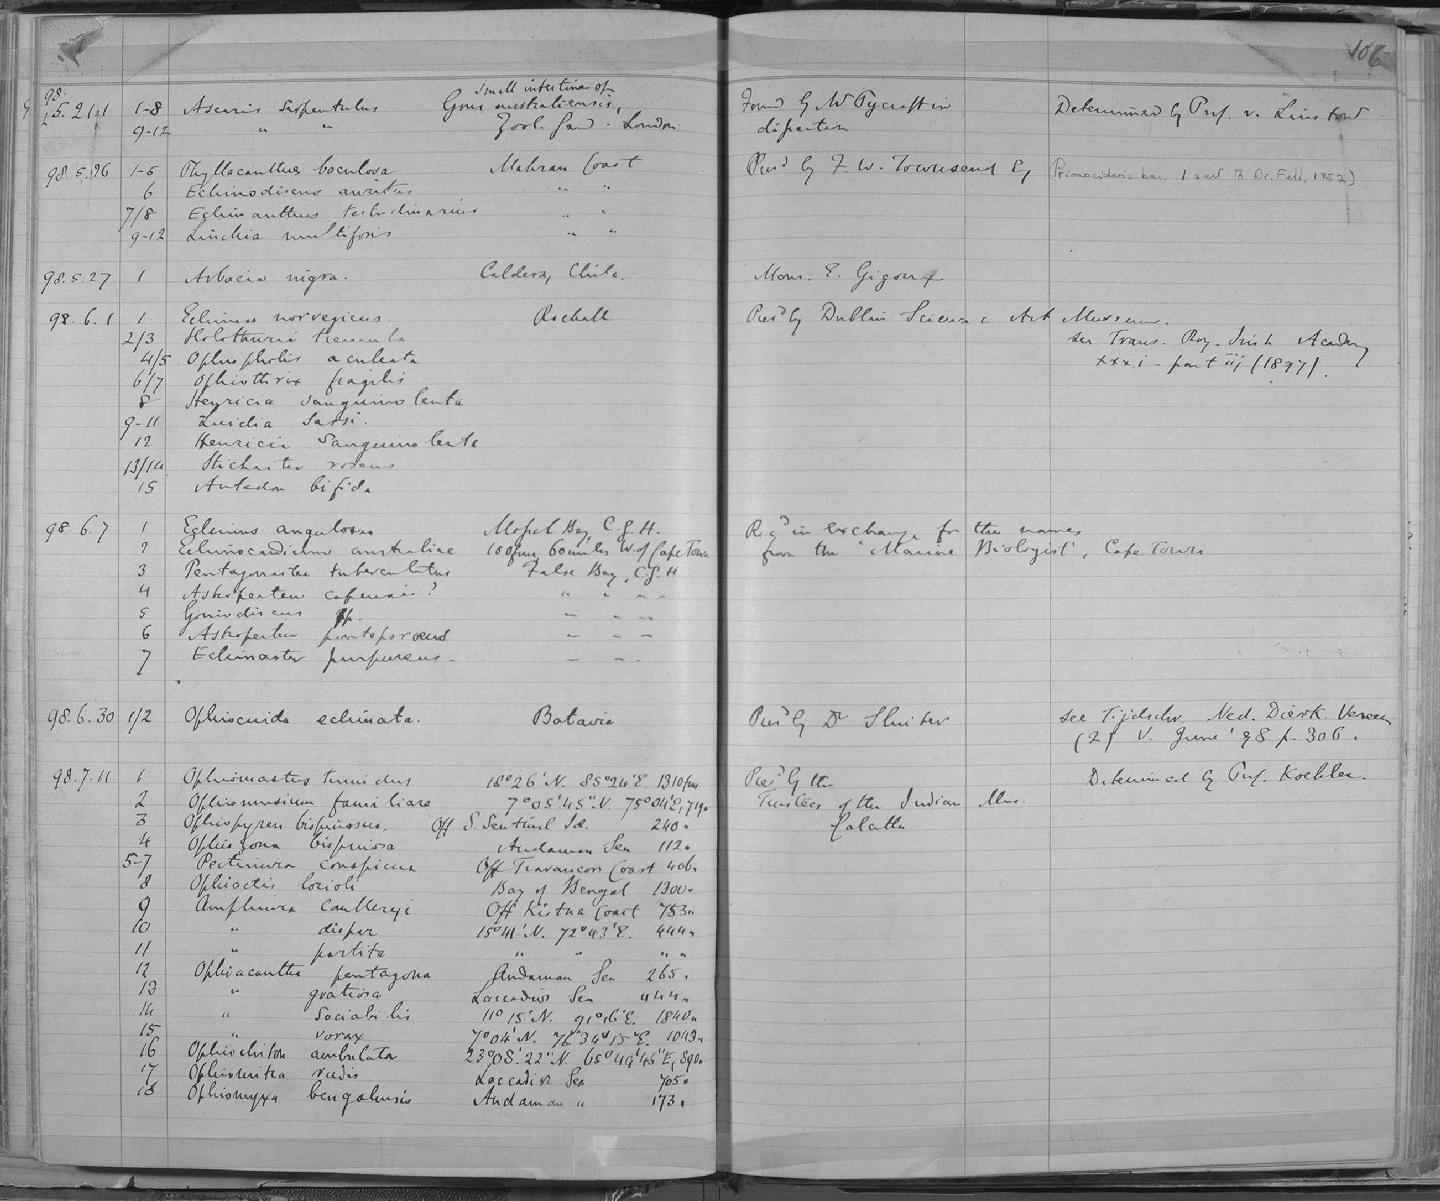 106
98. 5. 21.1 1-8 Ascaris serpentulus small intestine of Grus australiensis, Found by Mr Pycraft in Determined by Prof. v. Linstow
9-12 " " Zool. Gard. London dissection
98.5.26 1-5 Phyllacanthus baculosa Mahran Coast Pres^d by F. W. Townsend Esq
6 Echinodiscus auritus " "
7/8 Echinanthus testudinarius " "
9-12 Linckia multiforis " "
98.5.27 1 Arbacia nigra. Caldera, Chile. Mons. E. Gigoux
98.6.1 1 Echinus norvegicus. Rockall Pres^d by Dublin Science & Art Museum.
2/3 Holothuria tremula see Trans. Roy. Irish Academy
4/5 Ophiopholis aculeata xxxi - part iij (1897).
6/7 Ophiothrix fragilis
8 Henricia sanguinolenta
9-11 Luidia Sarsi.
12 Henricia Sanguinolenta
13/14 Stichaster roseus
15 Antedon bifida
98.6.7 1 Echinus angulosus Mossel Bay, C.G.H. Rec^d in exchange for the names
2 Echinocardium australiae 100 fms, 60 miles W. of Cape Town from the "Marine Biologist", Cape Town
3 Pentagonaster tuberculatus False Bay, C.G.H
4 Astropecten capensis? " " " "
5 Goniodiscus sp. " " "
6 Astropecten pontoporaeus " " "
7 Echinaster purpureus " " "
98.6.30 1/2 Ophiocnida echinata. Batavia Pres^d by Dr Sluiter see Tijdschr Ned. Dierk. Vereen
(2) V. June '98 p. 306.
98.7.11 1 Ophiomastus tumidus 18°26'N. 85°24'E. 1310 fms Pres^d by the Determined by Prof. Koehler.
2 Ophiomusium familiare 7°05'45"N. 75°04'E, 719 " Trustees of the Indian Mus.
3 Ophiopyren bispinosus. Off S. Sentinel Id. 240 " Calcutta
4 Ophiozona bispinosa Andaman Sea 112 "
5-7 Pectinura conspicua Off Travancore Coast 406 "
8 Ophiactis lorioli Bay of Bengal 1300 "
9 Amphiura caulleryi Off Kistna Coast 753 "
10 " dispar 15°41'N. 72°43'E. 444 "
11 " partita " " " "
12 Ophiacantha pentagona Andaman Sea 265 "
13 " gratiosa Laccadive Sea 444 "
14 " sociabilis 11°15'N. 91°16'E. 1840 "
15 " vorax 7°04'N. 76°34'15"E. 1043 "
16 Ophiochiton ambulator 23°08'.22"N. 65°49'45"E, 890 "
17 Ophiomitra rudis Laccadive Sea 705 "
18 Ophiomyxa bengalensis Andaman " 173 "